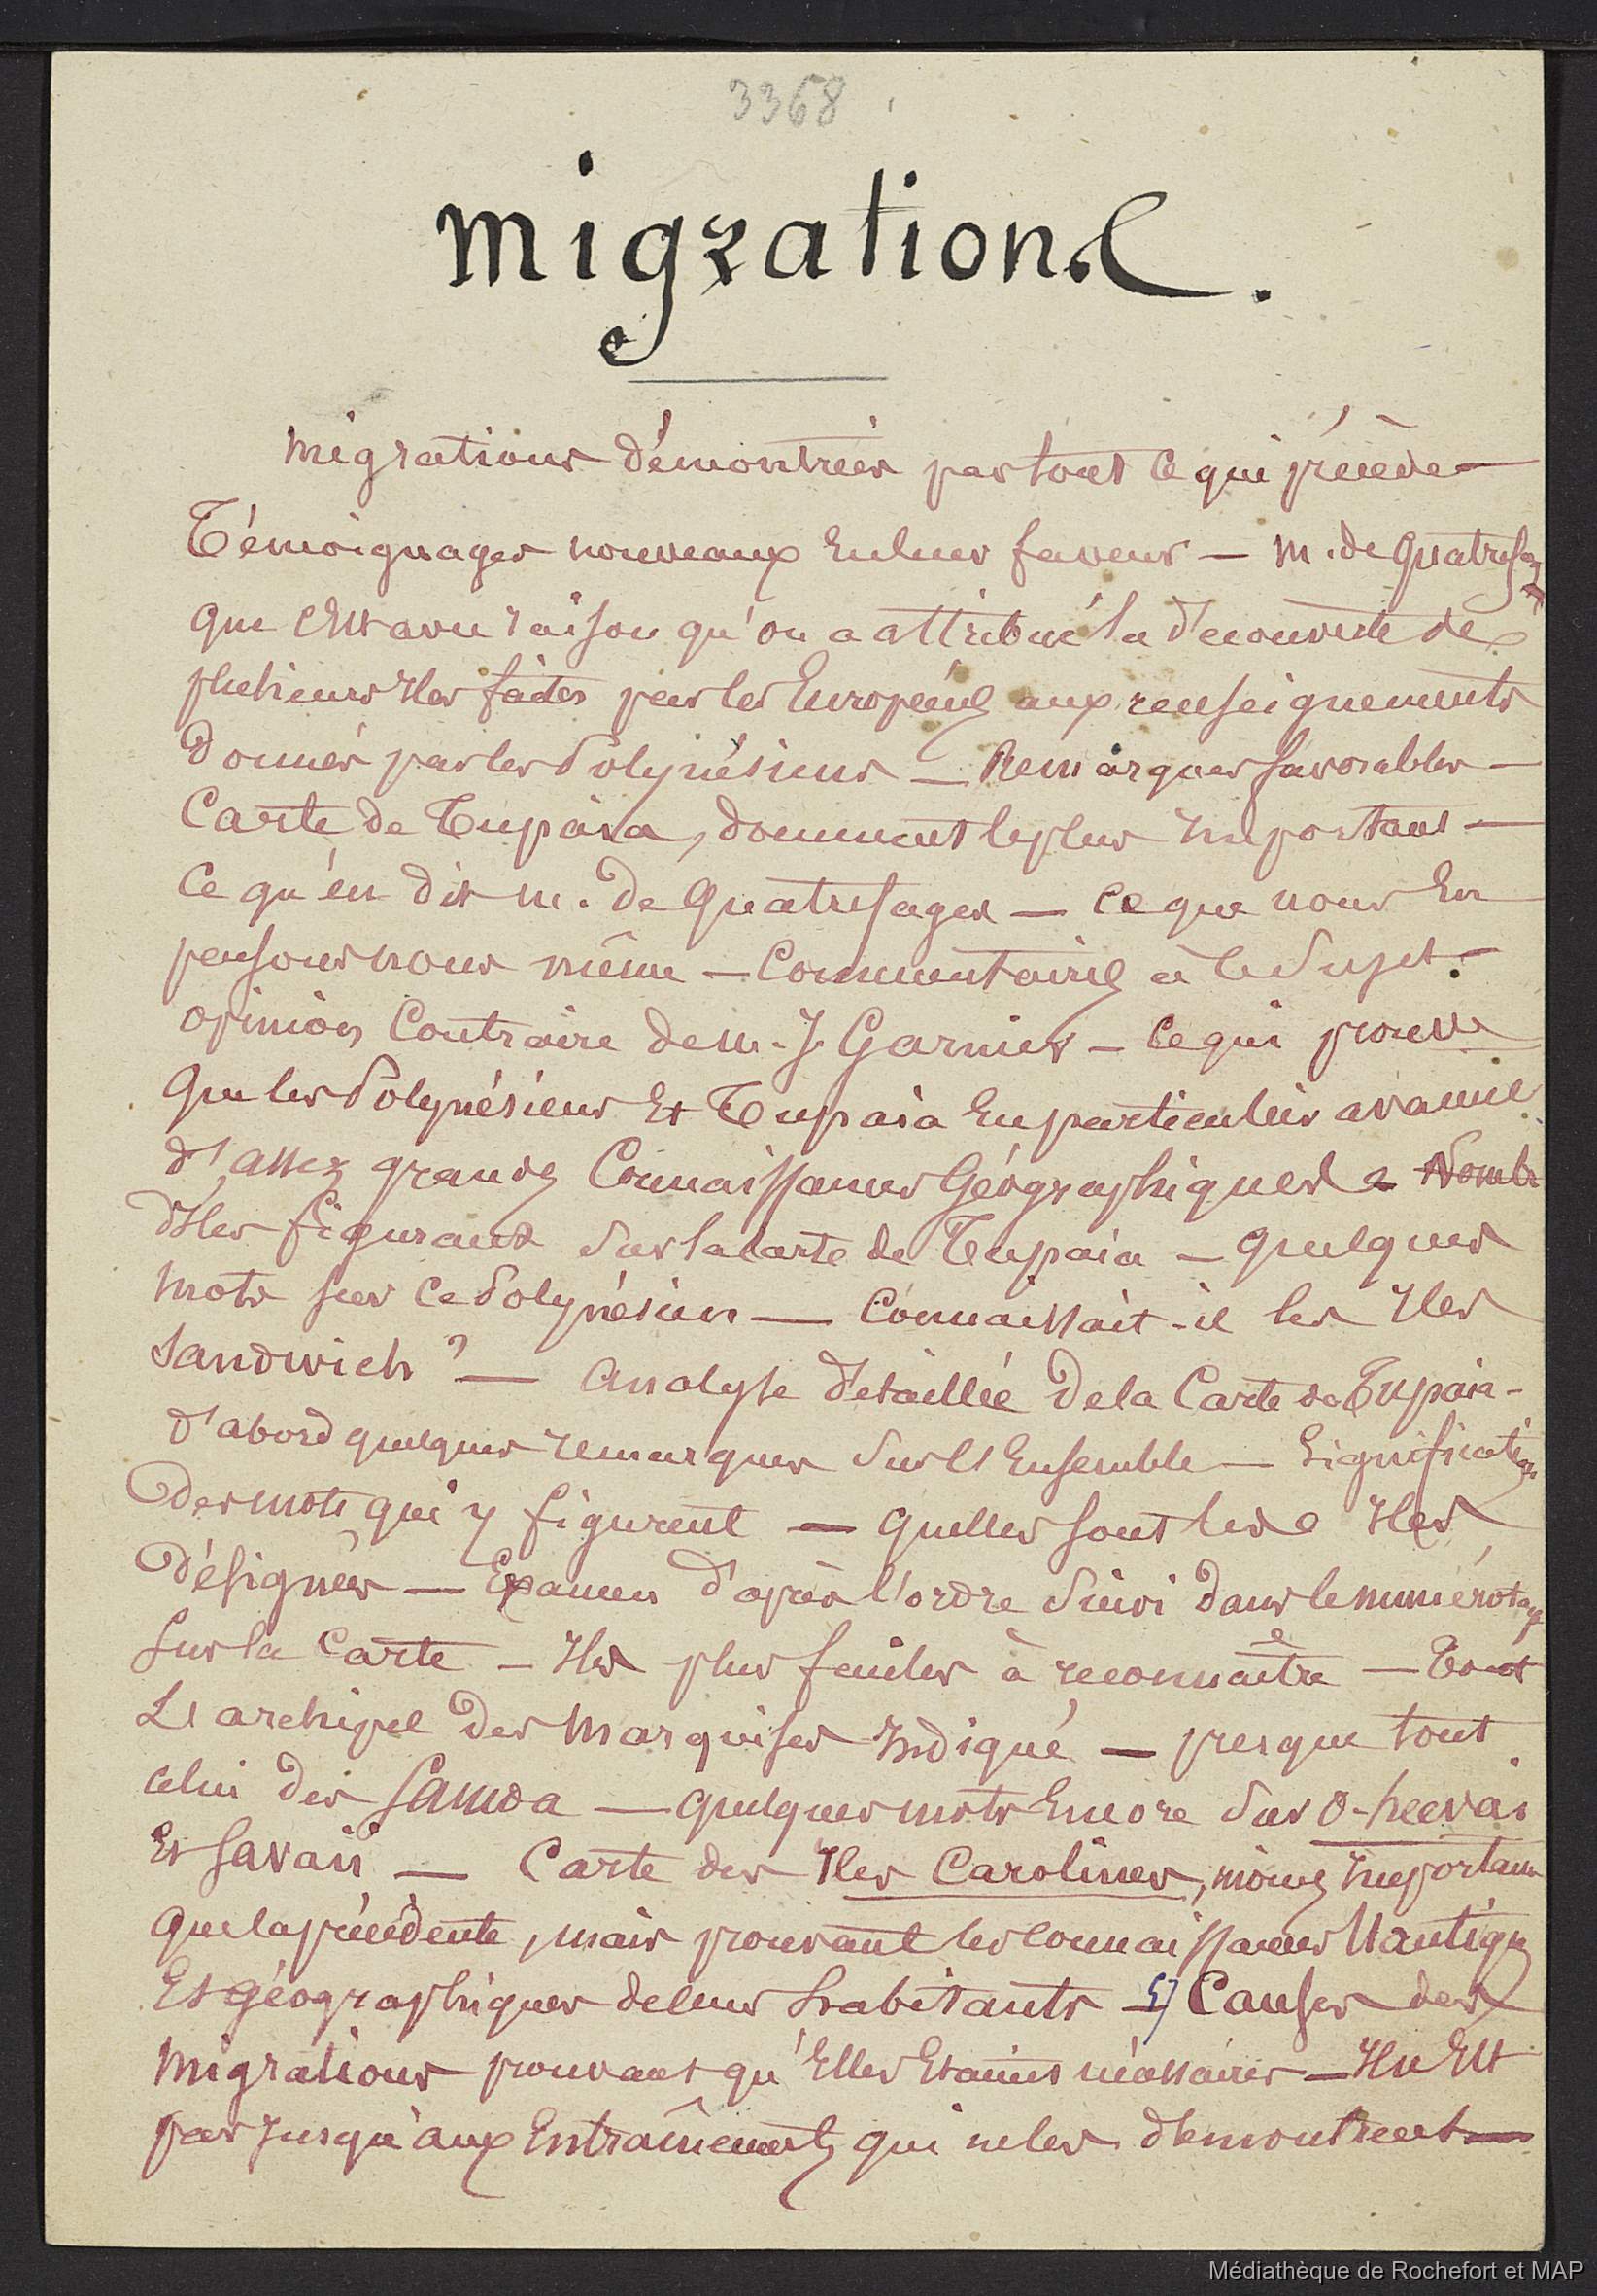 3368
Migrations.
Migrations démontrées par tout ce qui précède —
Témoignages nouveaux en leur faveur — M. de Quatrefag
que c'est avec raison qu'on a attribué la découverte de
plusieurs Iles faites par les Européens aux renseignements
donnés par les Polynésiens — Remarques favorables —
Carte de Tupaia, document le plus Important —
Ce qu'en dit M. de Quatrefages — ce que nous En
pensons nous même — Commentaires à ce Sujet. —
Opinion Contraire de M. J. Garnier — Ce qui prouve
Que les Polynésiens Et Tupaia En particulier avaient
d'assez grandes Connaissances Géographiques — Nombre
d'Iles figurant Sur la Carte de Tupaia — Quelques
mots sur ce Polynésien — Connaissait-il les Iles
Sandwich ? — Analyse détaillée de la Carte de Tupaia -
d'abord quelques remarques Sur l'Ensemble — Signification
des mots qui y figurent — Quelles sont les Iles
désignées — Examen d'après l'ordre Suivi dans le numérotage
Sur la Carte — Iles plus faciles à reconnaître — Tout
L'archipel des Marquises Indiqué — presque tout
celui des Samoa — Quelques mots Encore Sur O-heevai
Et Savaii — Carte des Iles Carolines, moins Importante
Que la précédente, mais prouvant les Connaissances Nautiques
Et Géographiques de leurs habitants — Causes des
Migrations prouvant qu'Elles Etaient nécessaires — Il n'Est
pas Jusqu'aux Entraînements qui ne les démontrent —
Médiathèque de Rochefort et MAP